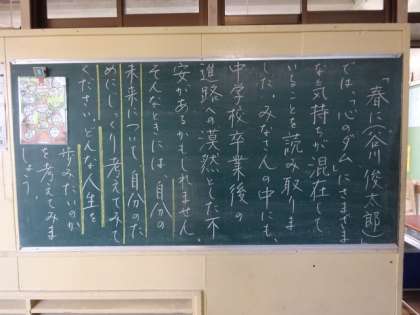 「春に(谷川俊太郎)」
では、「心のダム」にさまざま
な気持ちが混在して
いることを読み取りま
した。みなさんの中にも、
中学校卒業後の
進路への漠然とした不
安があるかもしれません。
そんなときには、自分の
未来について、自分のた
めにじっくり考えてみて
ください。どんな人生を
歩みたいのか
を考えてみま
しょう。